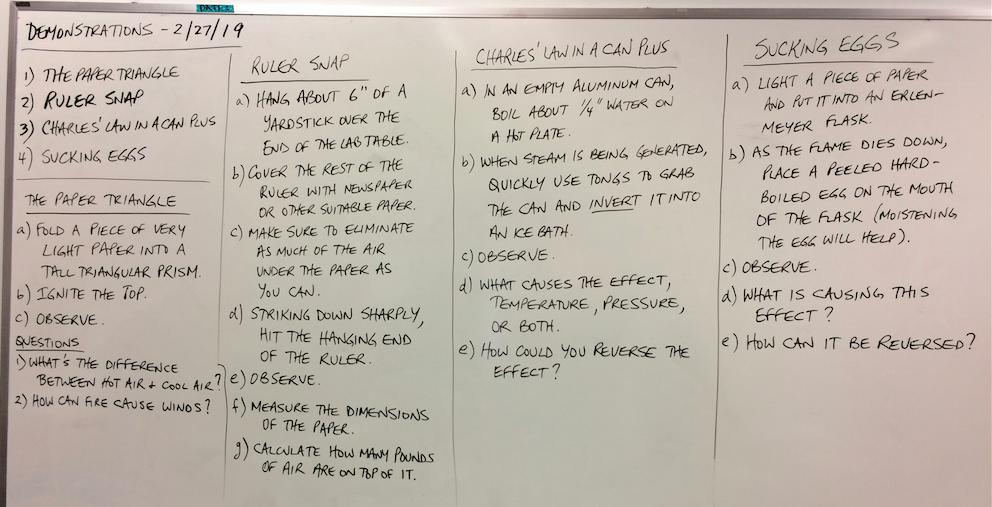 DEMONSTRATIONS - 2/27/19
1) THE PAPER TRIANGLE
2) RULER SNAP
3) CHARLES' LAW IN A CAN PLUS
4) SUCKING EGGS
THE PAPER TRIANGLE
a) FOLD A PIECE OF VERY
LIGHT PAPER INTO A
TALL TRIANGULAR PRISM.
b) IGNITE THE TOP.
c) OBSERVE.
QUESTIONS
1) WHAT'S THE DIFFERENCE
BETWEEN HOT AIR + COOL AIR?
2) HOW CAN FIRE CAUSE WINDS?
RULER SNAP
a) HANG ABOUT 6" OF A
YARDSTICK OVER THE
END OF THE LAB TABLE.
b) COVER THE REST OF THE
RULER WITH NEWSPAPER
OR OTHER SUITABLE PAPER.
c) MAKE SURE TO ELIMINATE
AS MUCH OF THE AIR
UNDER THE PAPER AS
YOU CAN.
d) STRIKING DOWN SHARPLY,
HIT THE HANGING END
OF THE RULER.
e) OBSERVE.
f) MEASURE THE DIMENSIONS
OF THE PAPER.
g) CALCULATE HOW MANY POUNDS
OF AIR ARE ON TOP OF IT.
CHARLES' LAW IN A CAN PLUS
a) IN AN EMPTY ALUMINUM CAN,
BOIL ABOUT 1/4" WATER ON
A HOT PLATE.
b) WHEN STEAM IS BEING GENERATED,
QUICKLY USE TONGS TO GRAB
THE CAN AND INVERT IT INTO
AN ICE BATH.
c) OBSERVE.
d) WHAT CAUSES THE EFFECT,
TEMPERATURE, PRESSURE,
OR BOTH.
e) HOW COULD YOU REVERSE THE
EFFECT?
SUCKING EGGS
a) LIGHT A PIECE OF PAPER
AND PUT IT INTO AN ERLEN-
MEYER FLASK.
b) AS THE FLAME DIES DOWN,
PLACE A PEELED HARD-
BOILED EGG ON THE MOUTH
OF THE FLASK (MOISTENING
THE EGG WILL HELP).
c) OBSERVE.
d) WHAT IS CAUSING THIS
EFFECT?
e) HOW CAN IT BE REVERSED?